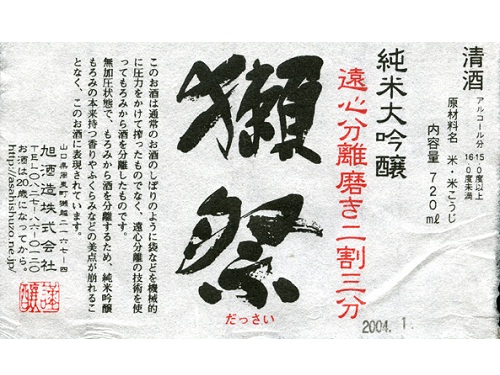 清酒
アルコール分 15・0度以上 16・0度未満
原材料名 米・米こうじ
内容量 720㎖
純米大吟醸
遠心分離磨き二割三分
獺祭
だっさい
このお酒は通常のお酒のしぼりのように袋などを機械的
に圧力をかけて搾ったものでなく、遠心分離の技術を使
ってもろみから酒を分離したものです。
無加圧状態で、もろみから酒を分離するため、純米吟醸
もろみの本来持つ香りやふくらみなどの美点が崩れるこ
となく、このお酒に表現されています。
山口県周東町獺越二一六七ー四
旭酒造株式会社
TEL〇八二七ー八六ー〇一二〇
お酒は20歳になってから。
http://asahishuzo.ne.jp/
謹醸
2004. 1.